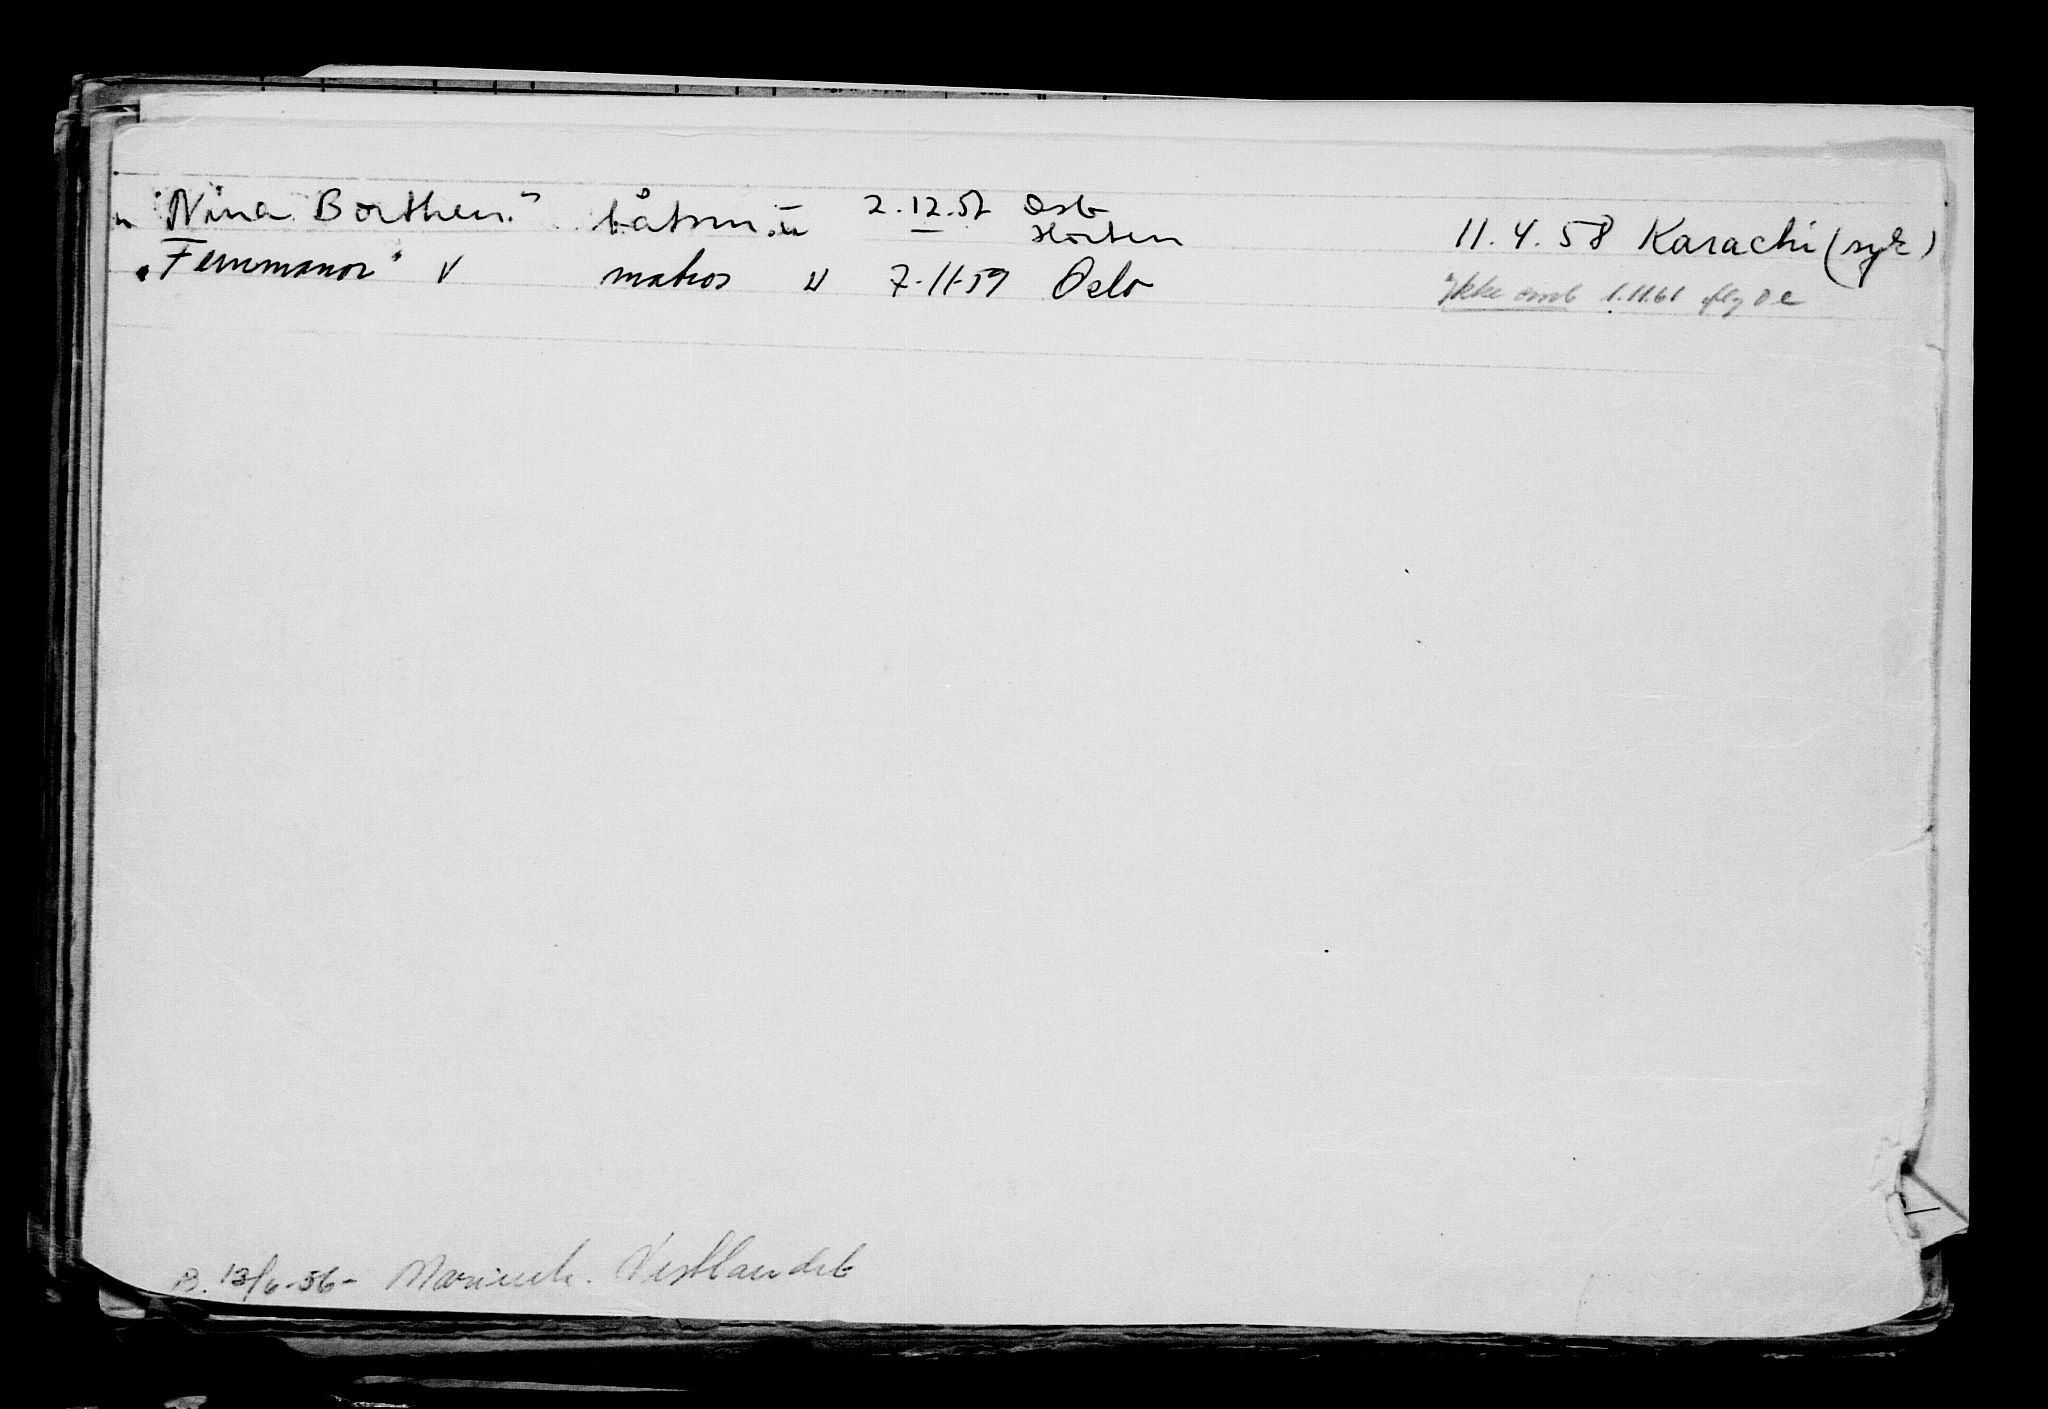 " "Nina Borthen." båtsm. u 2.12.57 Oslo Horten 11.4.58 Karachi (syk)
"Fernmanor" V matros u 7-11-59 Oslo Ikke omb 1.11.61
B. 13/6-56- Marinek. Vestlandet